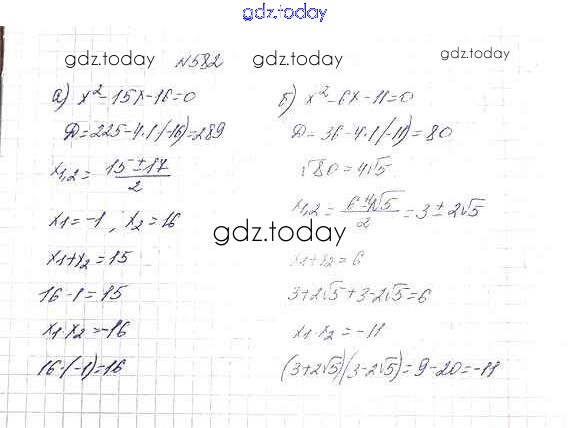 gdz.today
gdz.today №582 gdz.today gdz.today
а) x²-15x-16=0
D=225-4·1·(-16)=289
x1,2 = 15±17 / 2
x1=-1; x2=16
gdz.today
x1+x2=15
16-1=15
x1·x2=-16
16·(-1)=16
б) x²-6x-11=0
D=36-4·1·(-11)=80
√80=4√5
x1,2 = 6±4√5 / 2 = 3±2√5
x1+x2=6
3+2√5+3-2√5=6
x1·x2=-11
(3+2√5)(3-2√5)=9-20=-11